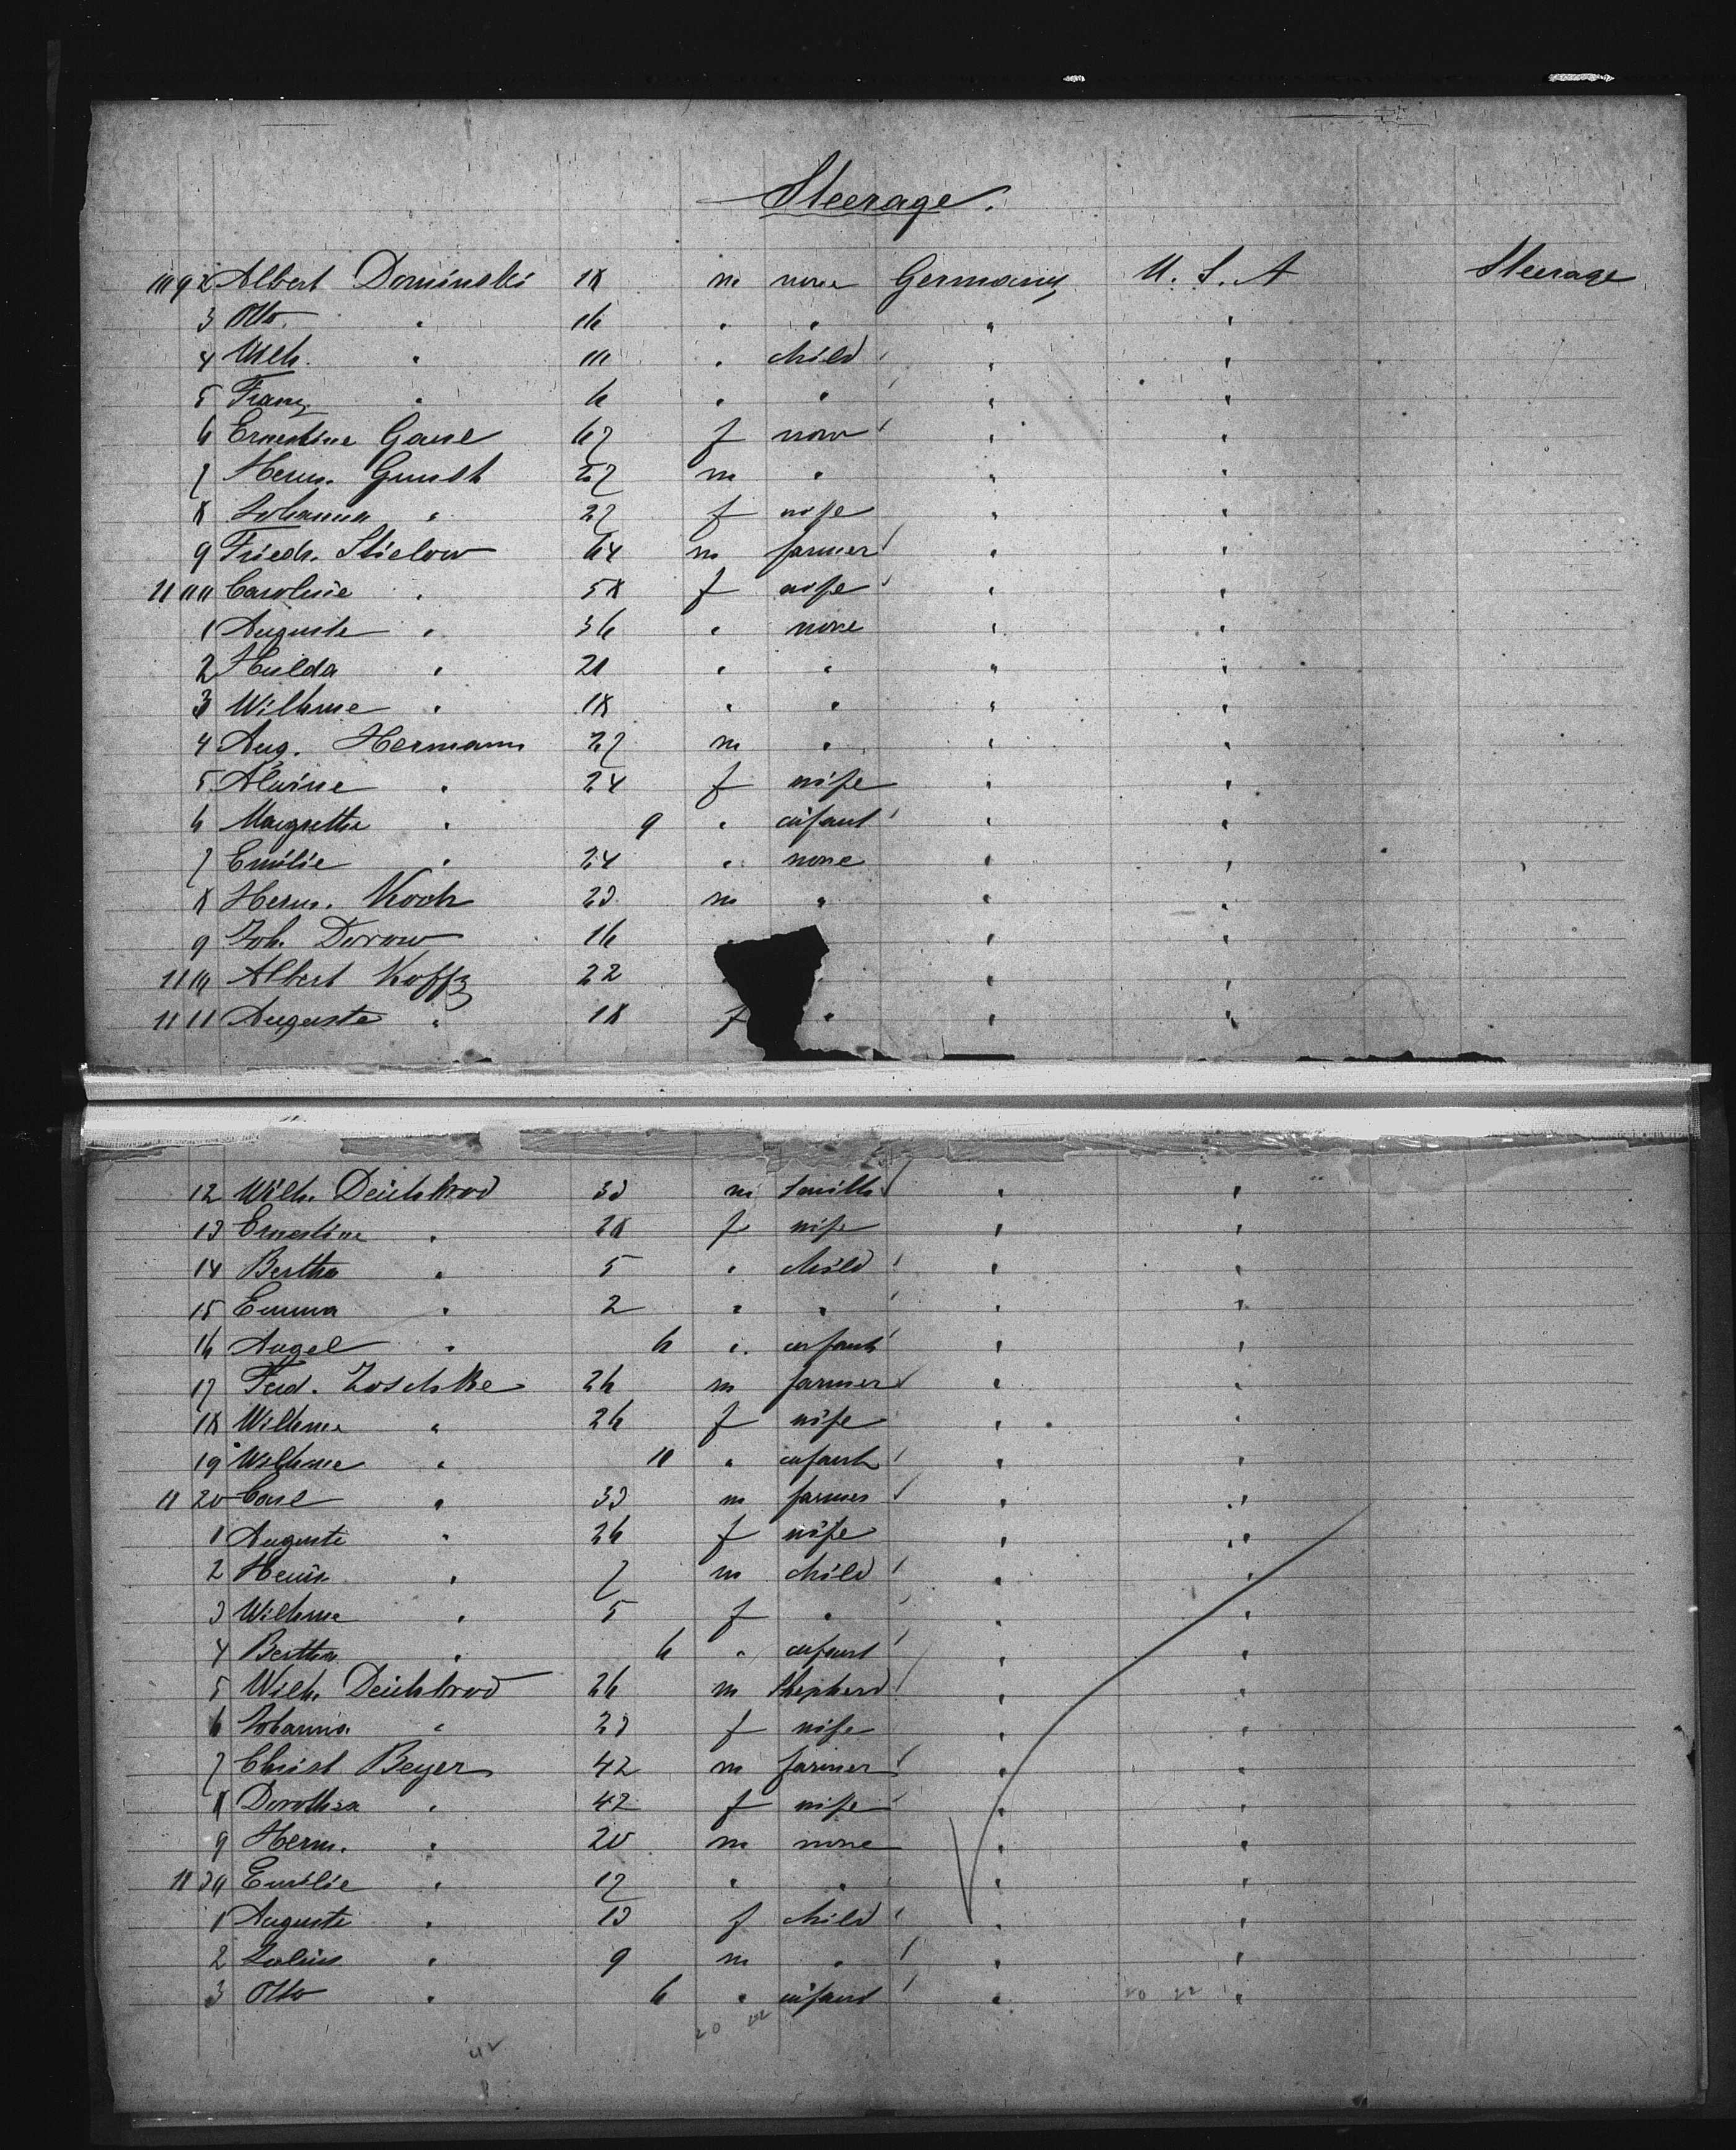 Steerage.
1092 Albert Dominski 18 m none Germany U. S. A Steerage
3 Otto " 16 " " " "
4 Wilh. " 10 " child " "
5 Franz " 6 " " " "
6 Ernestine 67 f none " "
7 Herm. 27 m " " "
8 Johanna " 27 f wife " "
9 Friedr. Stielow 64 m farmer " "
1100 Caroline " 58 f wife " "
1 Auguste " 36 " none " "
2 Hulda " 20 " " " "
3 Wilhme " 18 " " " "
4 Aug. Hermann 27 m " " "
5 Alwine " 24 f wife " "
6 Margretha " 9 " infant " "
7 Emilie " 24 " none " "
8 Herm. Koch 23 m " " "
9 Joh. Dorow 16 " " "
1110 Albert Koffz 22 " " "
1111 Auguste " 18 f " " "
12 Wilh. Deichkrod 33 m Smith " "
13 Ernestine " 28 f wife " "
14 Bertha " 5 " child " "
15 Emma " 2 " " " "
16 Angel " 6 " infant " "
17 Ferd. Zoschke 26 m farmer " "
18 Wilhme " 26 f wife " "
19 Wilhme " 10 " infant " "
11 20 Carl " 33 m farmer " "
1 Auguste " 26 f wife " "
2 Heinr. " 7 m child " "
3 Wilhme " 5 f " " "
4 Bertha " 6 " infant " "
5 Wilh. Deichkrod 26 m Shepherd " "
6 Johanna " 23 f wife " "
7 Christ Beyer 42 m farmer " "
8 Dorothea " 42 f wife " "
9 Herm. " 20 m none " "
11 30 Emilie " 17 " " " "
1 Auguste " 13 f child " "
2 Julius " 9 m " " "
3 Otto " 6 " infant " "
20 22 20 22
42